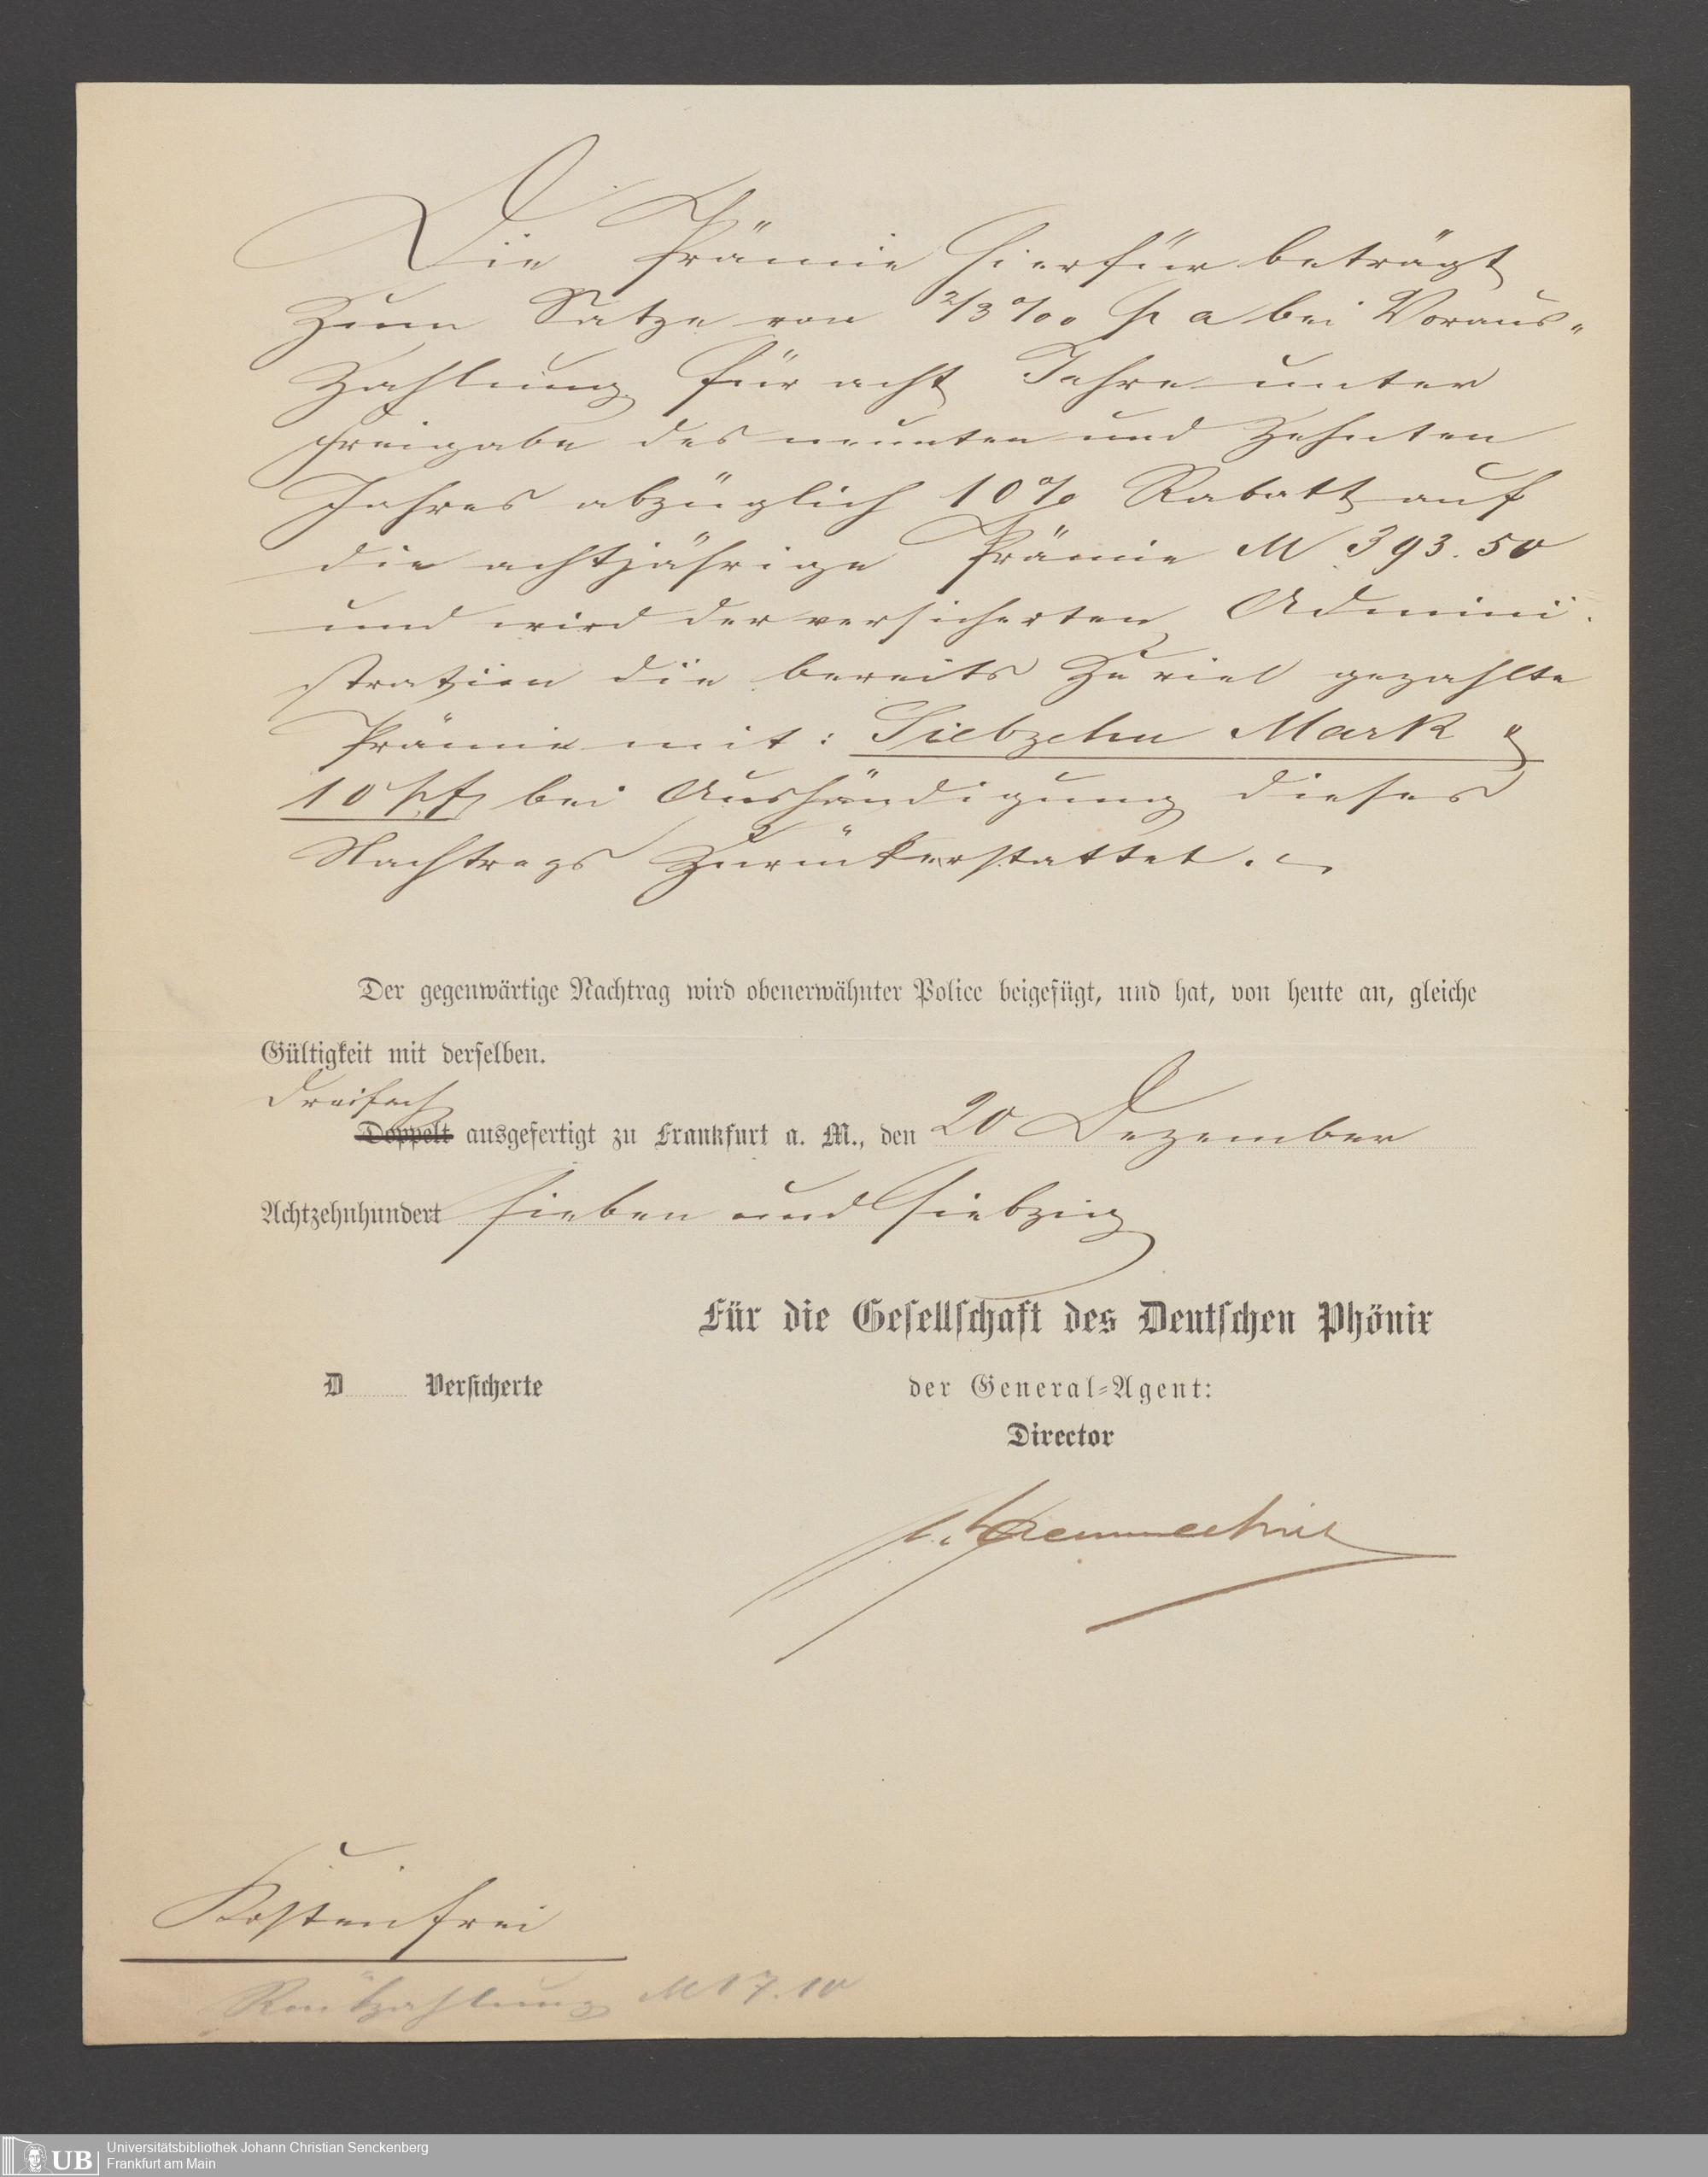 Die Prämie hierfür beträgt
zum Satze von 2/3 ‰ p a bei Voraus-
zahlung für acht Jahre unter
Freigabe des neunten und zehnten
Jahres abzüglich 10% Rabatt auf
die achtjährige Prämie M 393.50
und wird der versicherten Admini-
stration die bereits zu viel gezahlte
Prämie mit: Siebzehn Mark &
10 Pf bei Aushändigung dieses
Nachtrags zurückerstattet.
Der gegenwärtige Nachtrag wird obenerwähnter Police beigefügt, und hat, von heute an, gleiche
Gültigkeit mit derselben.
Dreifach
Doppelt ausgefertigt zu Frankfurt a. M., den 20 Dezember
Achtzehnhundert sieben und siebzig
Für die Gesellschaft des Deutschen Phönix
D Versicherte der General-Agent:
Director
Kostenfrei
Rückzahlung M 17.10
UB Universitätsbibliothek Johann Christian Senckenberg
Frankfurt am Main